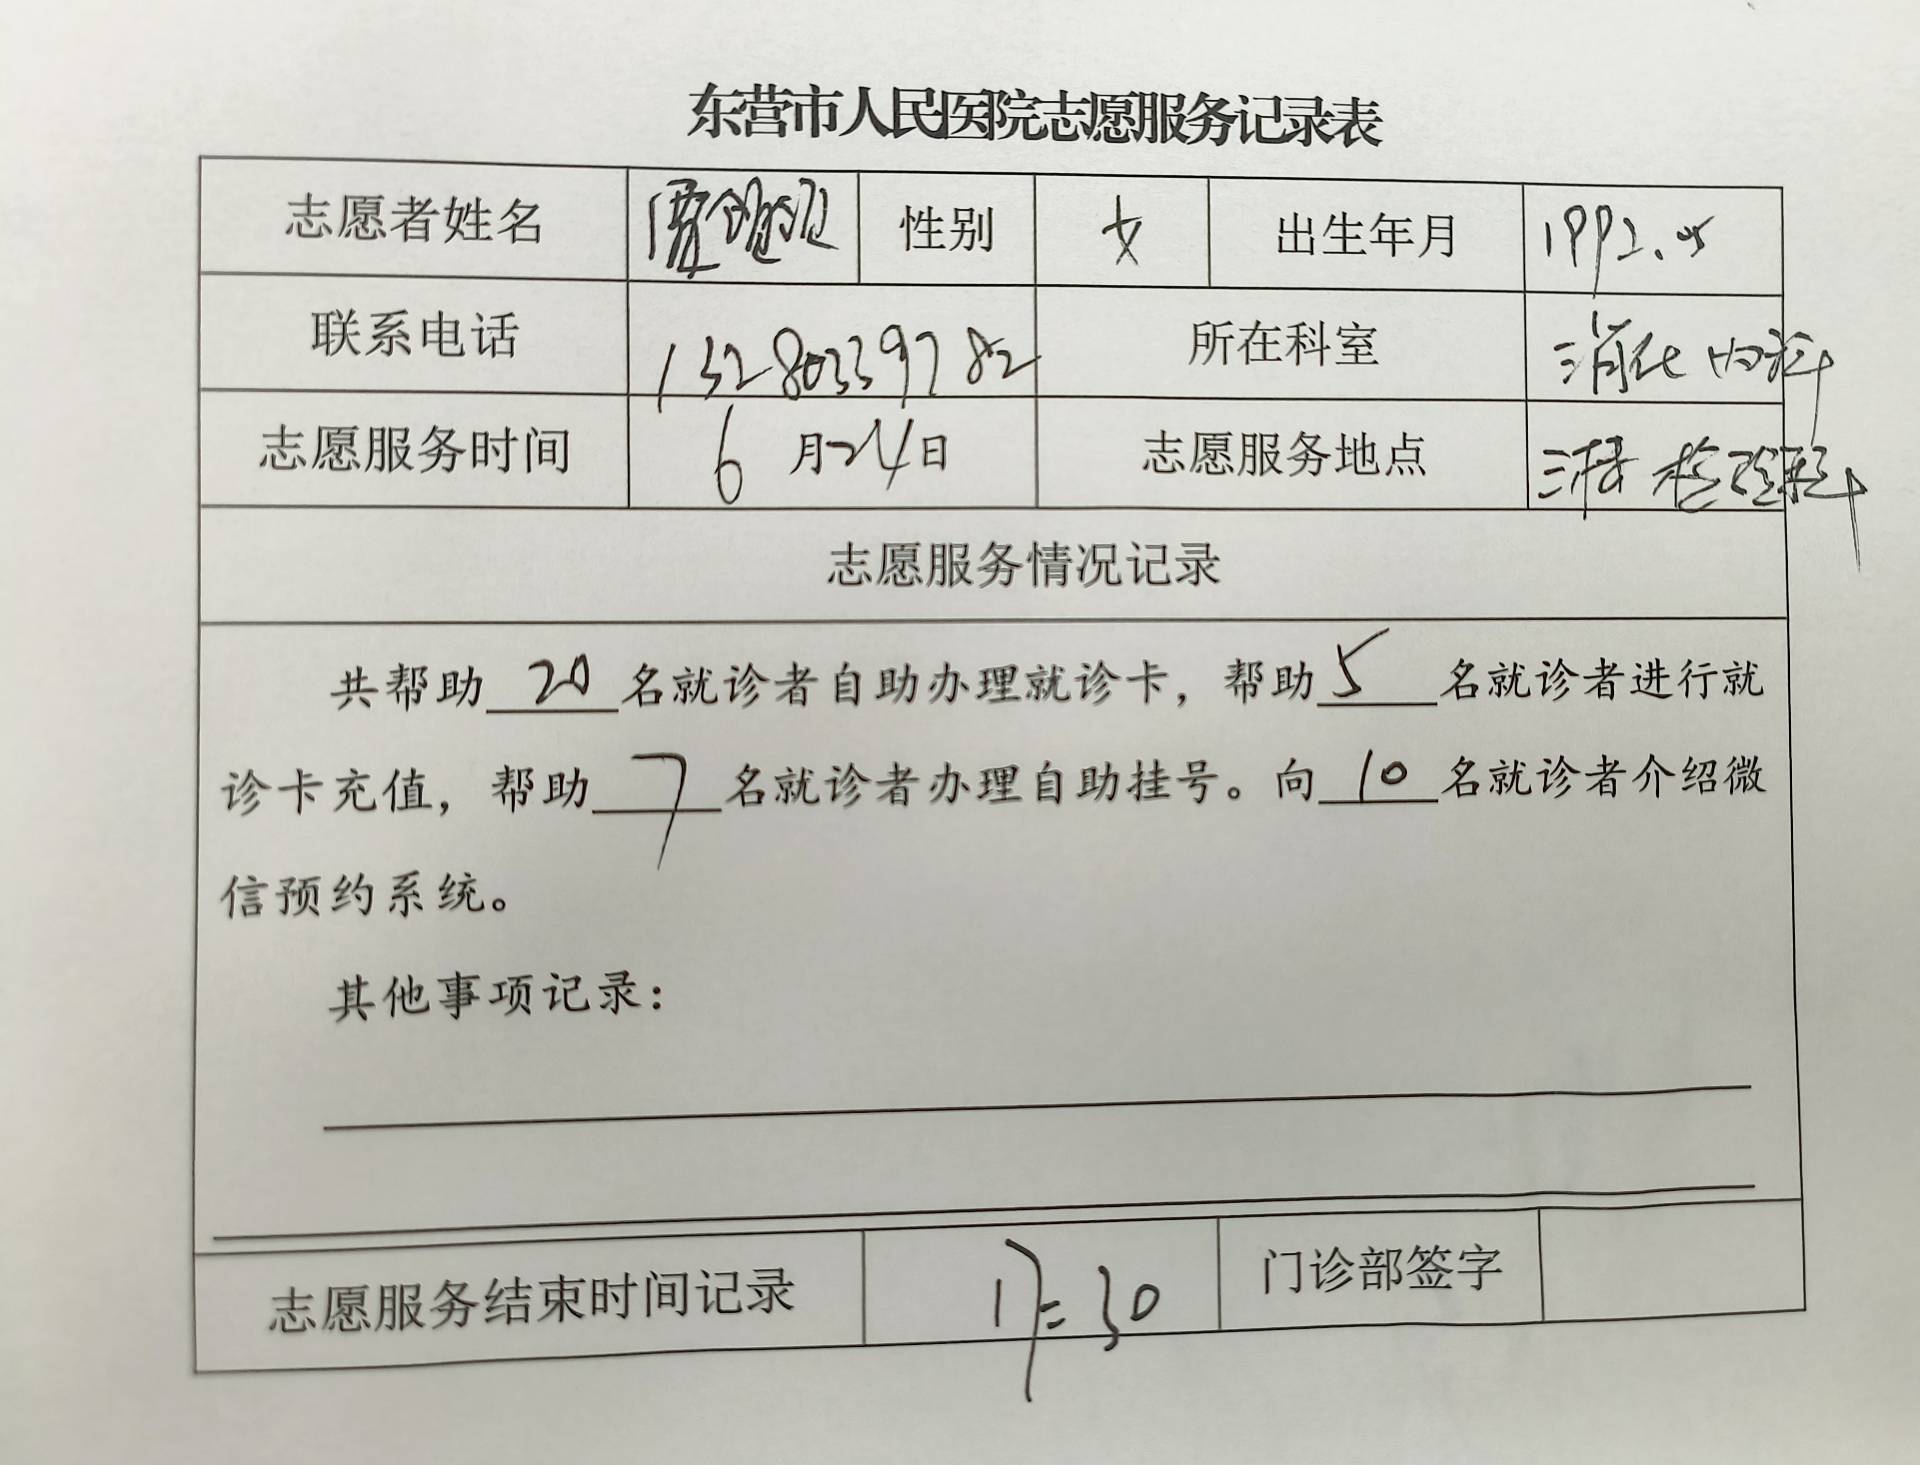 东营市人民医院志愿服务记录表
志愿者姓名 性别 女 出生年月 1992.05
联系电话 13280339782 所在科室 消化内科
志愿服务时间 6月24日 志愿服务地点 三楼检验科
志愿服务情况记录
共帮助20名就诊者自助办理就诊卡，帮助5名就诊者进行就
诊卡充值，帮助7名就诊者办理自助挂号。向10名就诊者介绍微
信预约系统。
其他事项记录：
志愿服务结束时间记录 17:30 门诊部签字